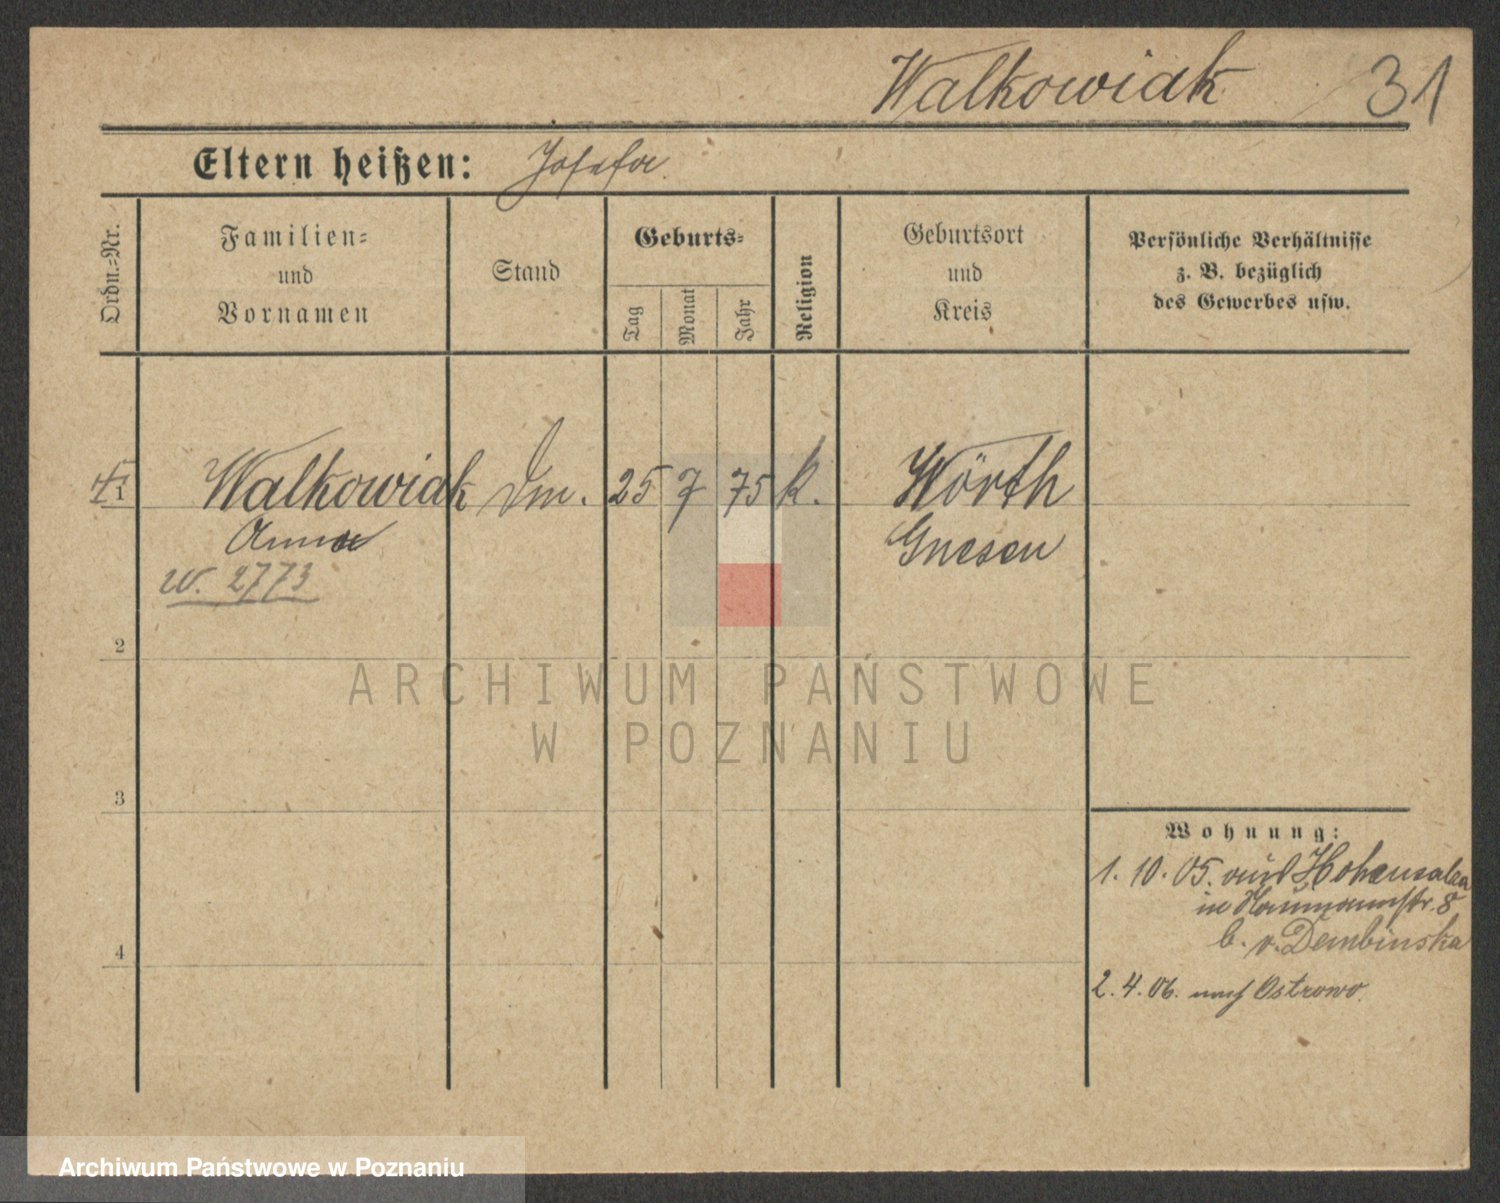 Walkowiak 31
Eltern heißen: Josefa.
Ordn.-Nr.
Familien-
und
Vornamen
Stand
Geburts-
Tag
Monat
Jahr
Religion
Geburtsort
und
Kreis
Persönliche Verhältnisse
z. B. bezüglich
des Gewerbes usw.
1 Walkowiak 25 7 75 k. Wörth
Anna Gnesen
W. 2773
2
ARCHIWUM PAŃSTWOWE
W POZNANIU
3
Wohnung:
1. 10. 05. aus Hohensalza
in Naumannstr. 8
b. v. Dembinska
4
2. 4. 06. nach Ostrowo.
Archiwum Państwowe w Poznaniu